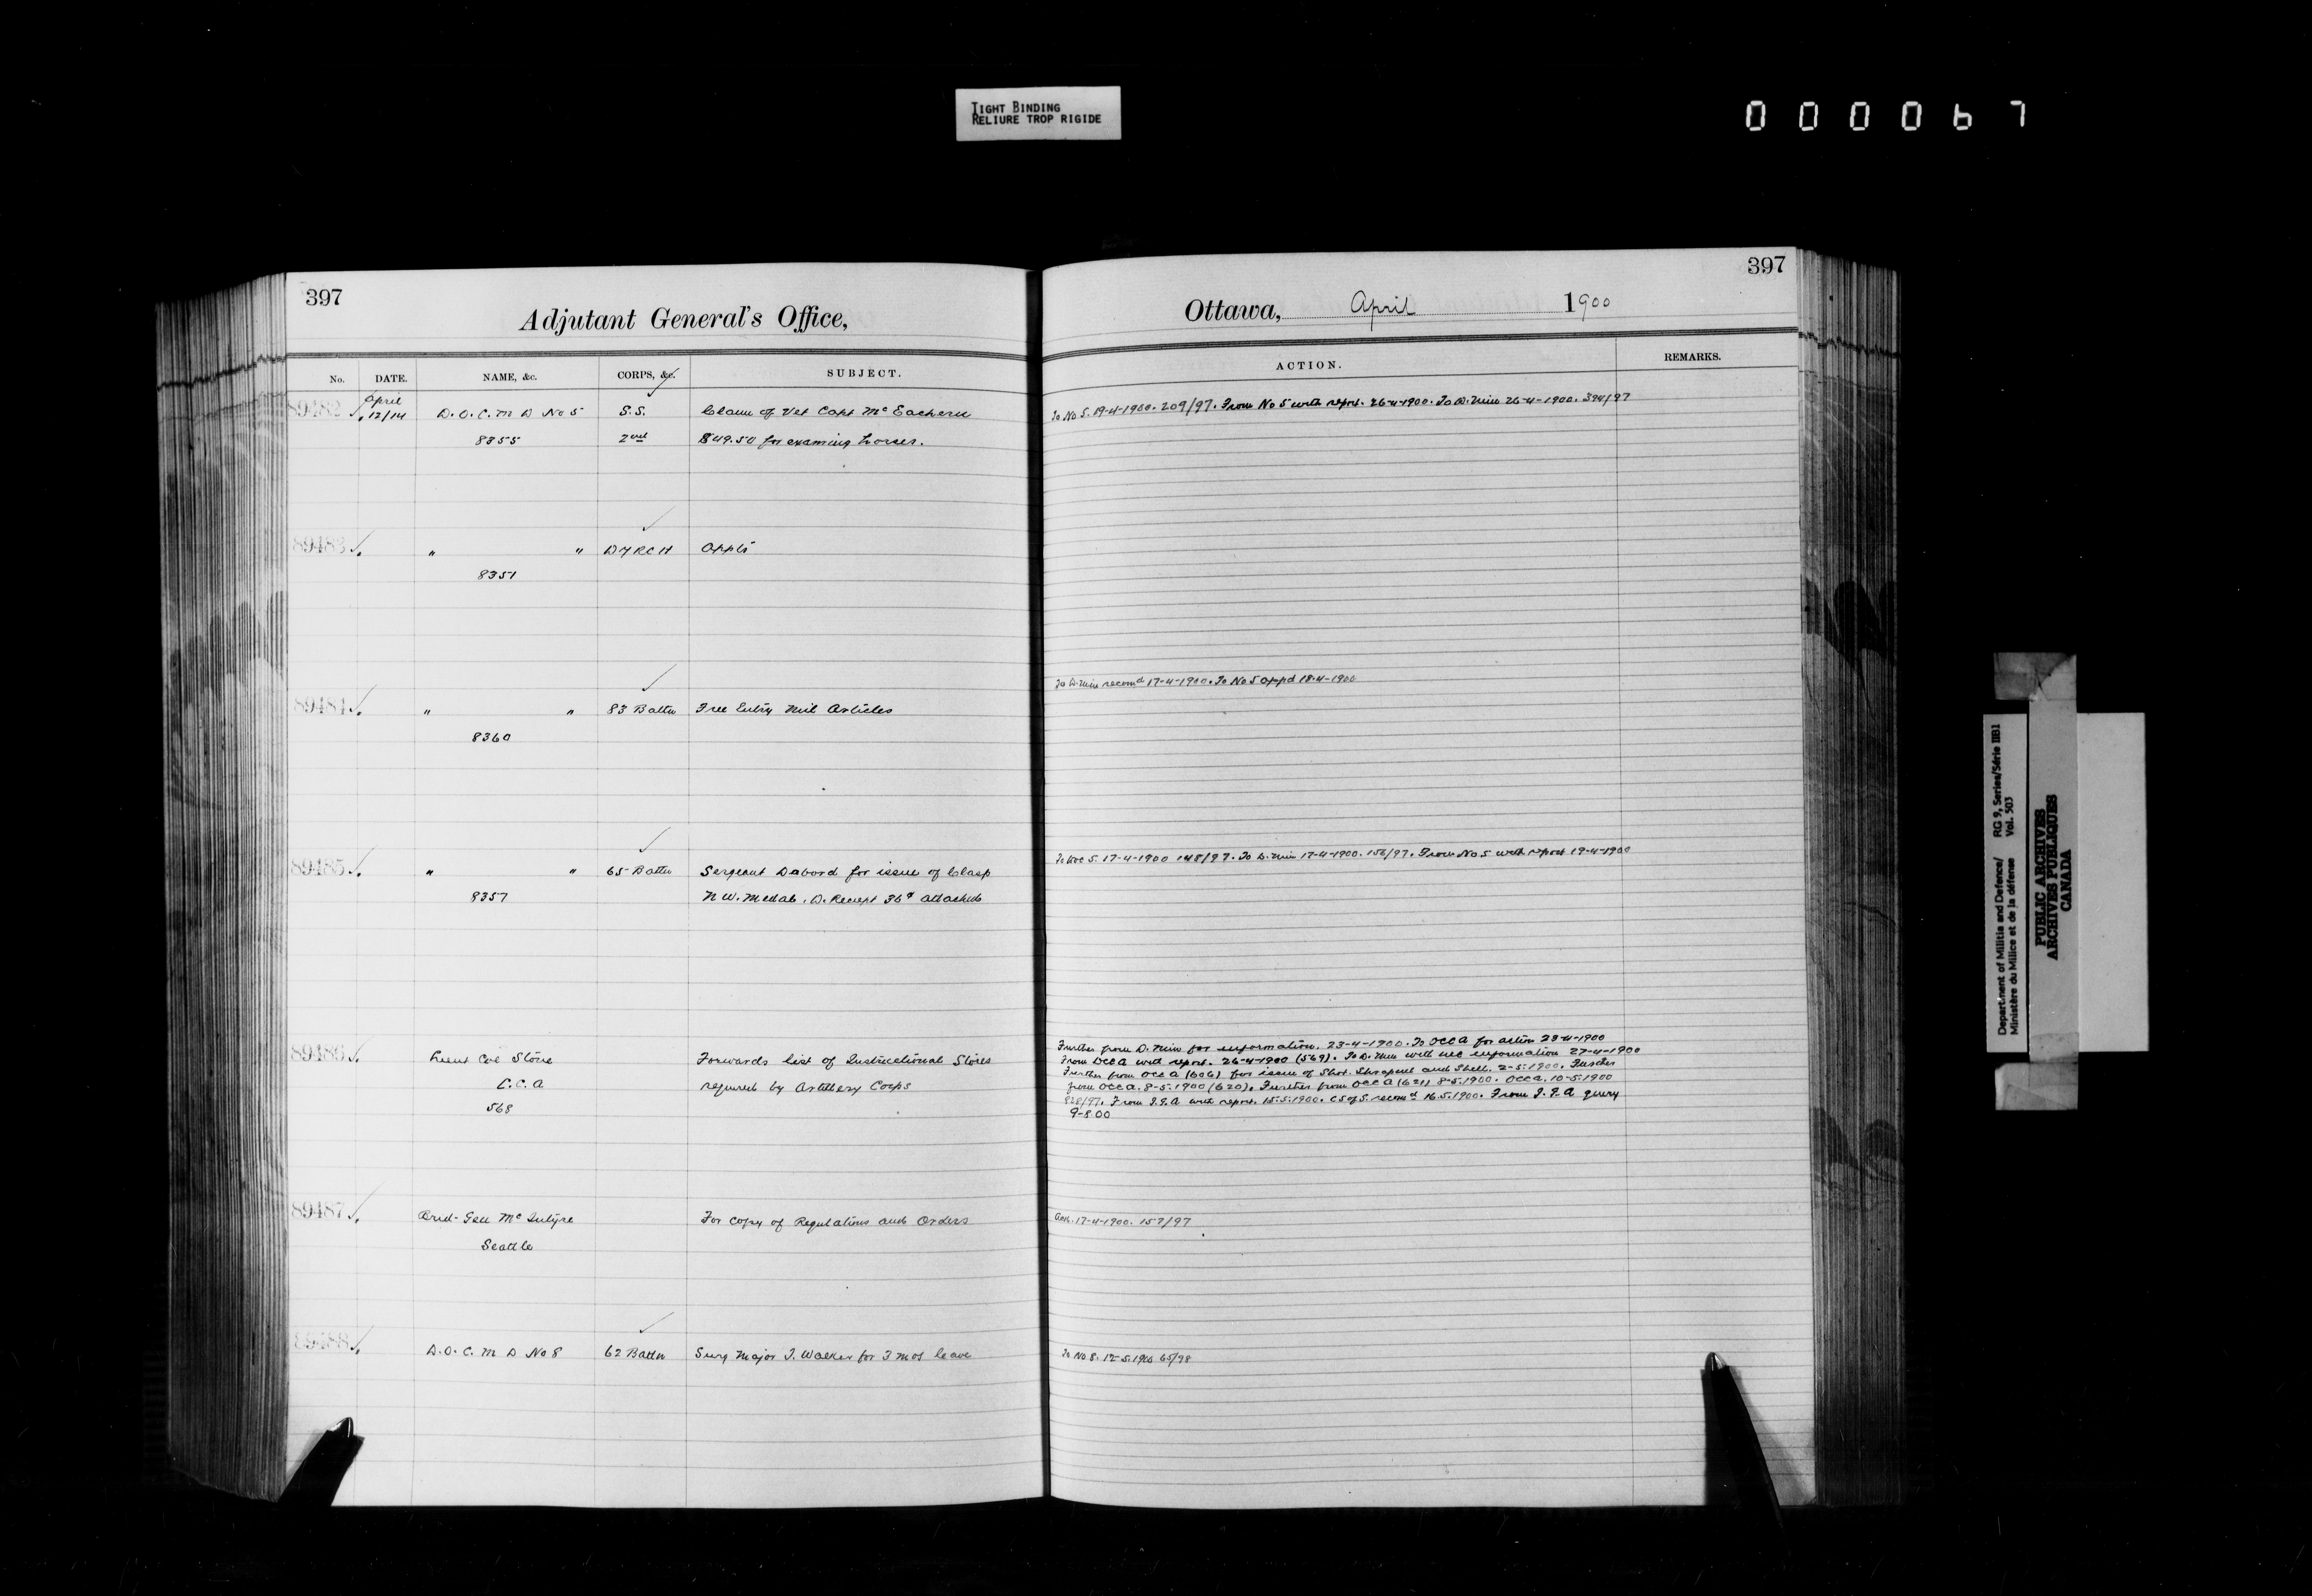 TIGHT BINDING
RELIURE TROP RIGIDE
000067
397
Adjutant General's Office,
No. DATE. NAME, &c. CORPS, &c. SUBJECT.
April
89482 12/14 D.O.C. M D No 5 S.S. Claim of Vet Capt McEachern
8355 2nd $49.50 for examing horses.
89483 " " D Y R C H Appts
8351
89484 " " 83 Battn Free Entry Mil Articles
8360
89485 " " 65 Battn Sergeant Dabord for issue of Clasp
8357 N W. Medal. D. Receipt 36c attached
89486 Lieut Col Stone Forwards list of Instructional Stores
C.A required by Artillery Corps
568
89487 Brid-Gen McIntyre For copy of Regulations and Orders
Seattle
89488 D.O.C. M D No 8 62 Battn Surg Major J. Walker for 3 mos leave
397
Ottawa, April 1900
ACTION. REMARKS.
To No 5. 19-4-1900. 209/97. From No 5 with report. 26-4-1900. To D. Min 26-4-1900. 394/97
To D. Min recomd 17-4-1900. To No 5 appd 18-4-1900
5. 17-4-1900 148/97. To D. Min 17-4-1900. 156/97. From No 5 with report 19-4-1900
Further from D. Min for information. 23-4-1900. To OCCA for action 23-4-1900
From OCCA with report. 26-4-1900 (569). To D. Min with information 27-4-1900
Further from OCCA (606) for issue of Shot. Shrapnel and Shell. 2-5-1900. Further
from OCCA. 8-5-1900 (620). Further from OCCA (621) 8-5-1900. OCCA. 10-5-1900
828/97. From I.G.A with report. 15-5-1900. C S of S. recomd 16.5.1900. From I.G.A query
9-8.00
Ack. 17-4-1900. 157/97
To No 8. 12-5-1900 65/98
Department of Militia and Defence/ RG 9, Series/Série IIB1
Ministère du Milice et de la défense Vol. 503
PUBLIC ARCHIVES
ARCHIVES PUBLIQUES
CANADA